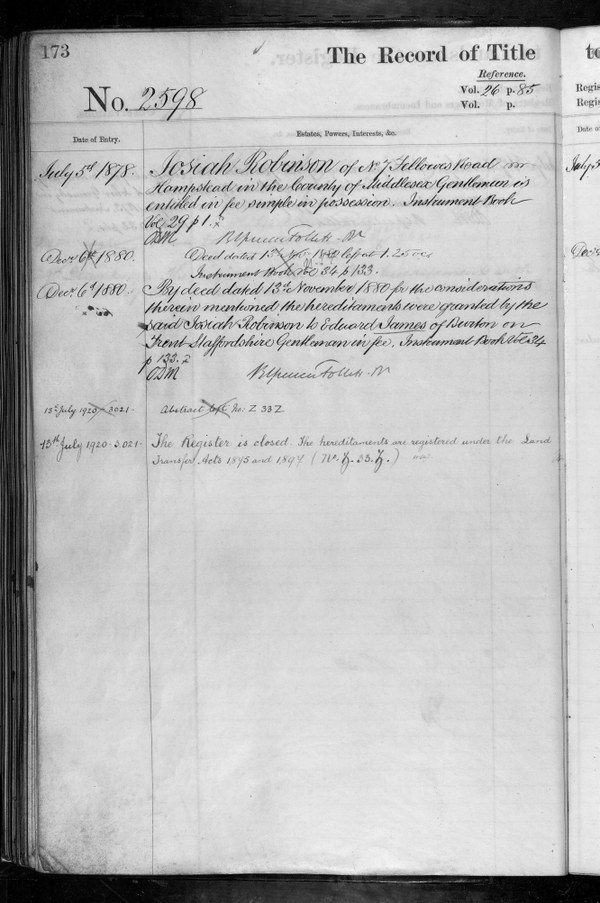 173
The Record of Title
Reference.
Vol. 26 p. 85
Vol. p.
No. 2598
Date of Entry.
Estates, Powers, Interests, &c.
July 5th 1878. Josiah Robinson of No. 7 Fellowes Road
Hampstead in the County of Middlesex Gentleman is
entitled in fee simple in possession. Instrument Book
Vol 29 p 1.
Decr. 6th 1880. Deed dated 13th Nov 1880 left at 1.25
Instrument Book Vol 34 p 133.
Decr. 6th 1880. By deed dated 13th November 1880 for the considerations
therein mentioned the hereditaments were granted by the
said Josiah Robinson to Edward James of Burton on
Trent Staffordshire Gentleman in fee. Instrument Book Vol 34
p 133.
13th July 1920 - 3021 - Abstract left No: Z 33 Z
13th July 1920 - 3021 - The Register is closed. The hereditaments are registered under the Land
Transfer Acts 1875 and 1897 (No. Z. 33. Z.)
to
Regis
Regis
July 5
Decr